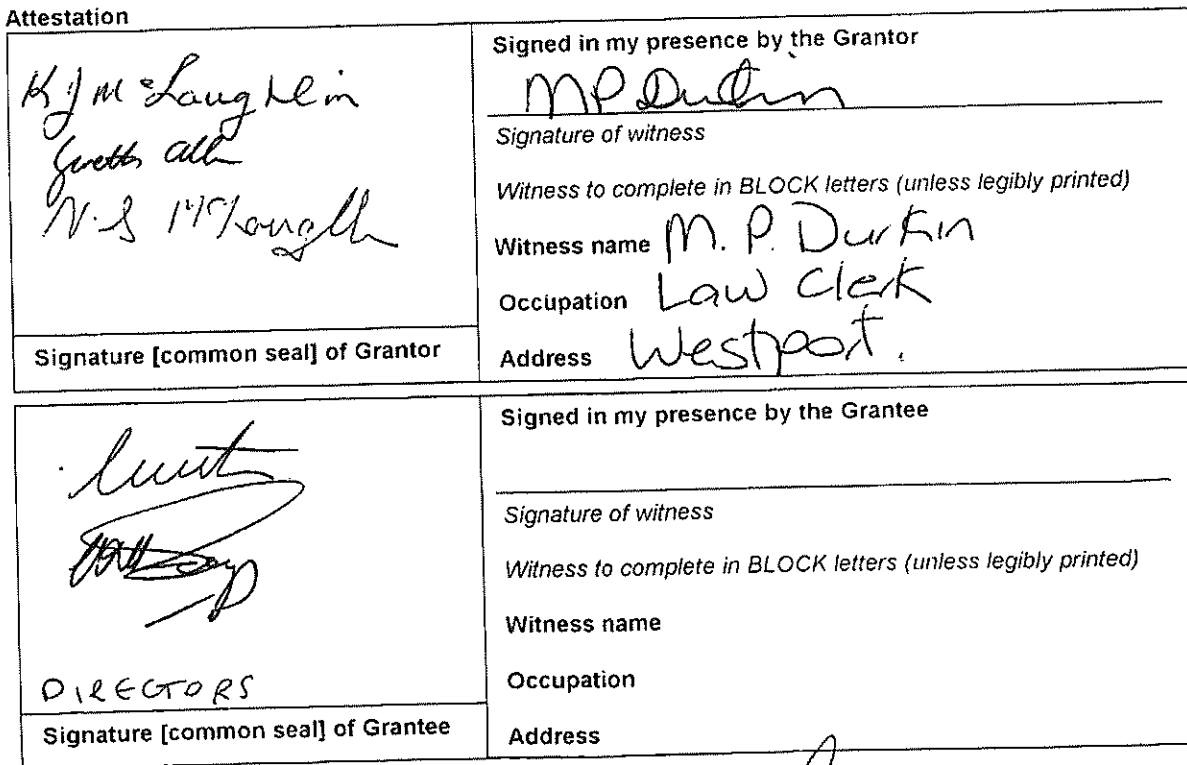 Attestation
K J McLaughlin
N. S McLaughlin
Signature [common seal] of Grantor
Signed in my presence by the Grantor
MP Durkin
Signature of witness
Witness to complete in BLOCK letters (unless legibly printed)
Witness name M. P. Durkin
Occupation Law Clerk
Address Westport.
DIRECTORS
Signature [common seal] of Grantee
Signed in my presence by the Grantee
Signature of witness
Witness to complete in BLOCK letters (unless legibly printed)
Witness name
Occupation
Address